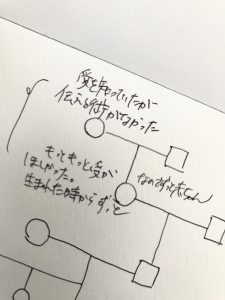 愛を知っていたが
伝える術がなかった
もっともっと愛が
ほしかった。
生まれた時からずっと
なのにずっと赤ちゃん